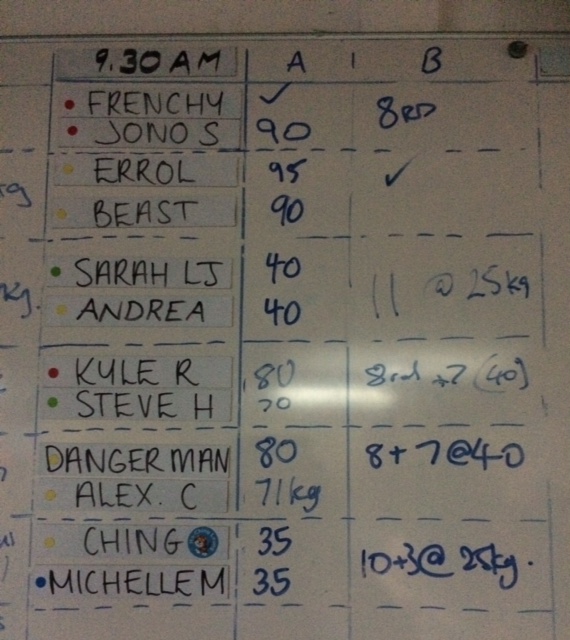 9.30 AM A B
FRENCHY ✓ 8RD
JONO S 90
ERROL 95 ✓
BEAST 90
SARAH LJ 40
11 @ 25kg
ANDREA 40
KYLE R 80 8rd +7 (40)
STEVE H 70
DANGERMAN 80 8+7@40
ALEX. C 71kg
CHING 35
10+3@ 25kg.
MICHELLE M 35